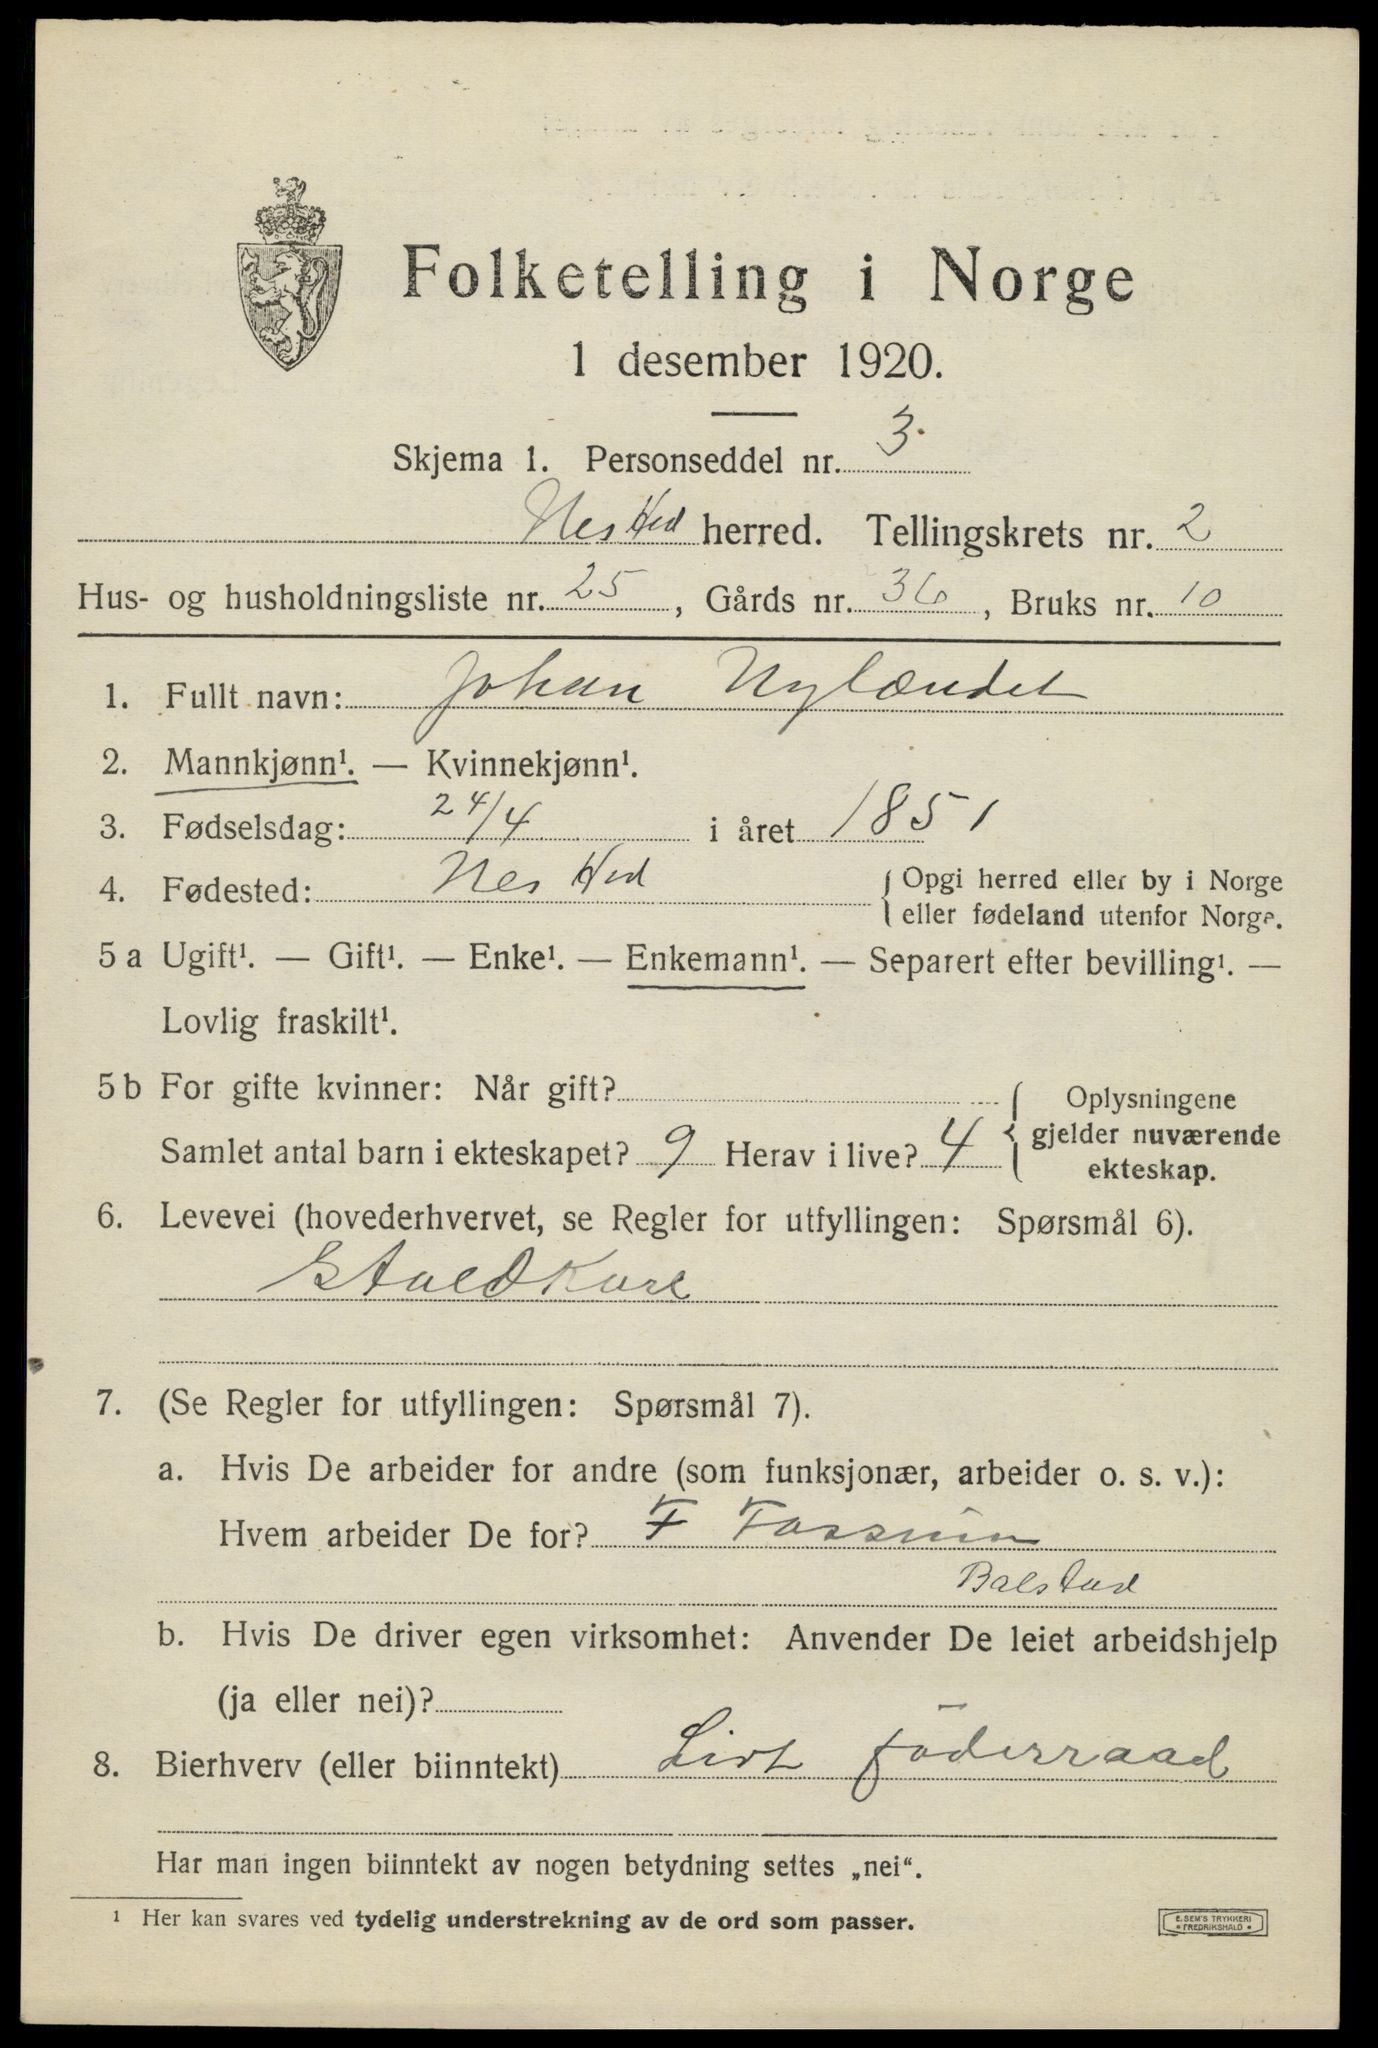 Folketelling i Norge
1 desember 1920.
Skjema 1. Personseddel nr. 3.
Nes Hed herred. Tellingskrets nr. 2
Hus- og husholdningsliste nr. 25, Gårds nr. 36, Bruks nr. 10
1. Fullt navn: Johan Nylændet
2. Mannkjønn¹. — Kvinnekjønn¹.
3. Fødselsdag: 24/4 i året 1851
4. Fødested: Nes Hed { Opgi herred eller by i Norge
eller fødeland utenfor Norge.
5 a Ugift¹. — Gift¹. — Enke¹. — Enkemann¹. — Separert efter bevilling¹. —
Lovlig fraskilt¹.
5 b For gifte kvinner: Når gift? { Oplysningene
gjelder nuværende
ekteskap.
Samlet antal barn i ekteskapet? 9 Herav i live? 4
6. Levevei (hovederhvervet, se Regler for utfyllingen: Spørsmål 6).
Staldkarl
7. (Se Regler for utfyllingen: Spørsmål 7).
a. Hvis De arbeider for andre (som funksjonær, arbeider o. s. v.):
Hvem arbeider De for? F Fossum
Balstad
b. Hvis De driver egen virksomhet: Anvender De leiet arbeidshjelp
(ja eller nei)?
8. Bierhverv (eller biinntekt) Lidt föderraad
Har man ingen biinntekt av nogen betydning settes „nei“.
¹ Her kan svares ved tydelig understrekning av de ord som passer.
E. SEM'S TRYKKERI
• FREDRIKSHALD •